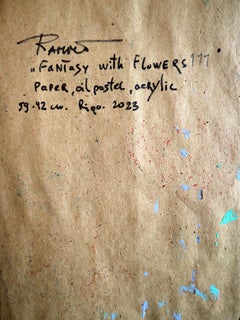 „Fantasy with Flowers 111
Paper, oil pastel, acrylic
59-42 cm. Riga. 2023